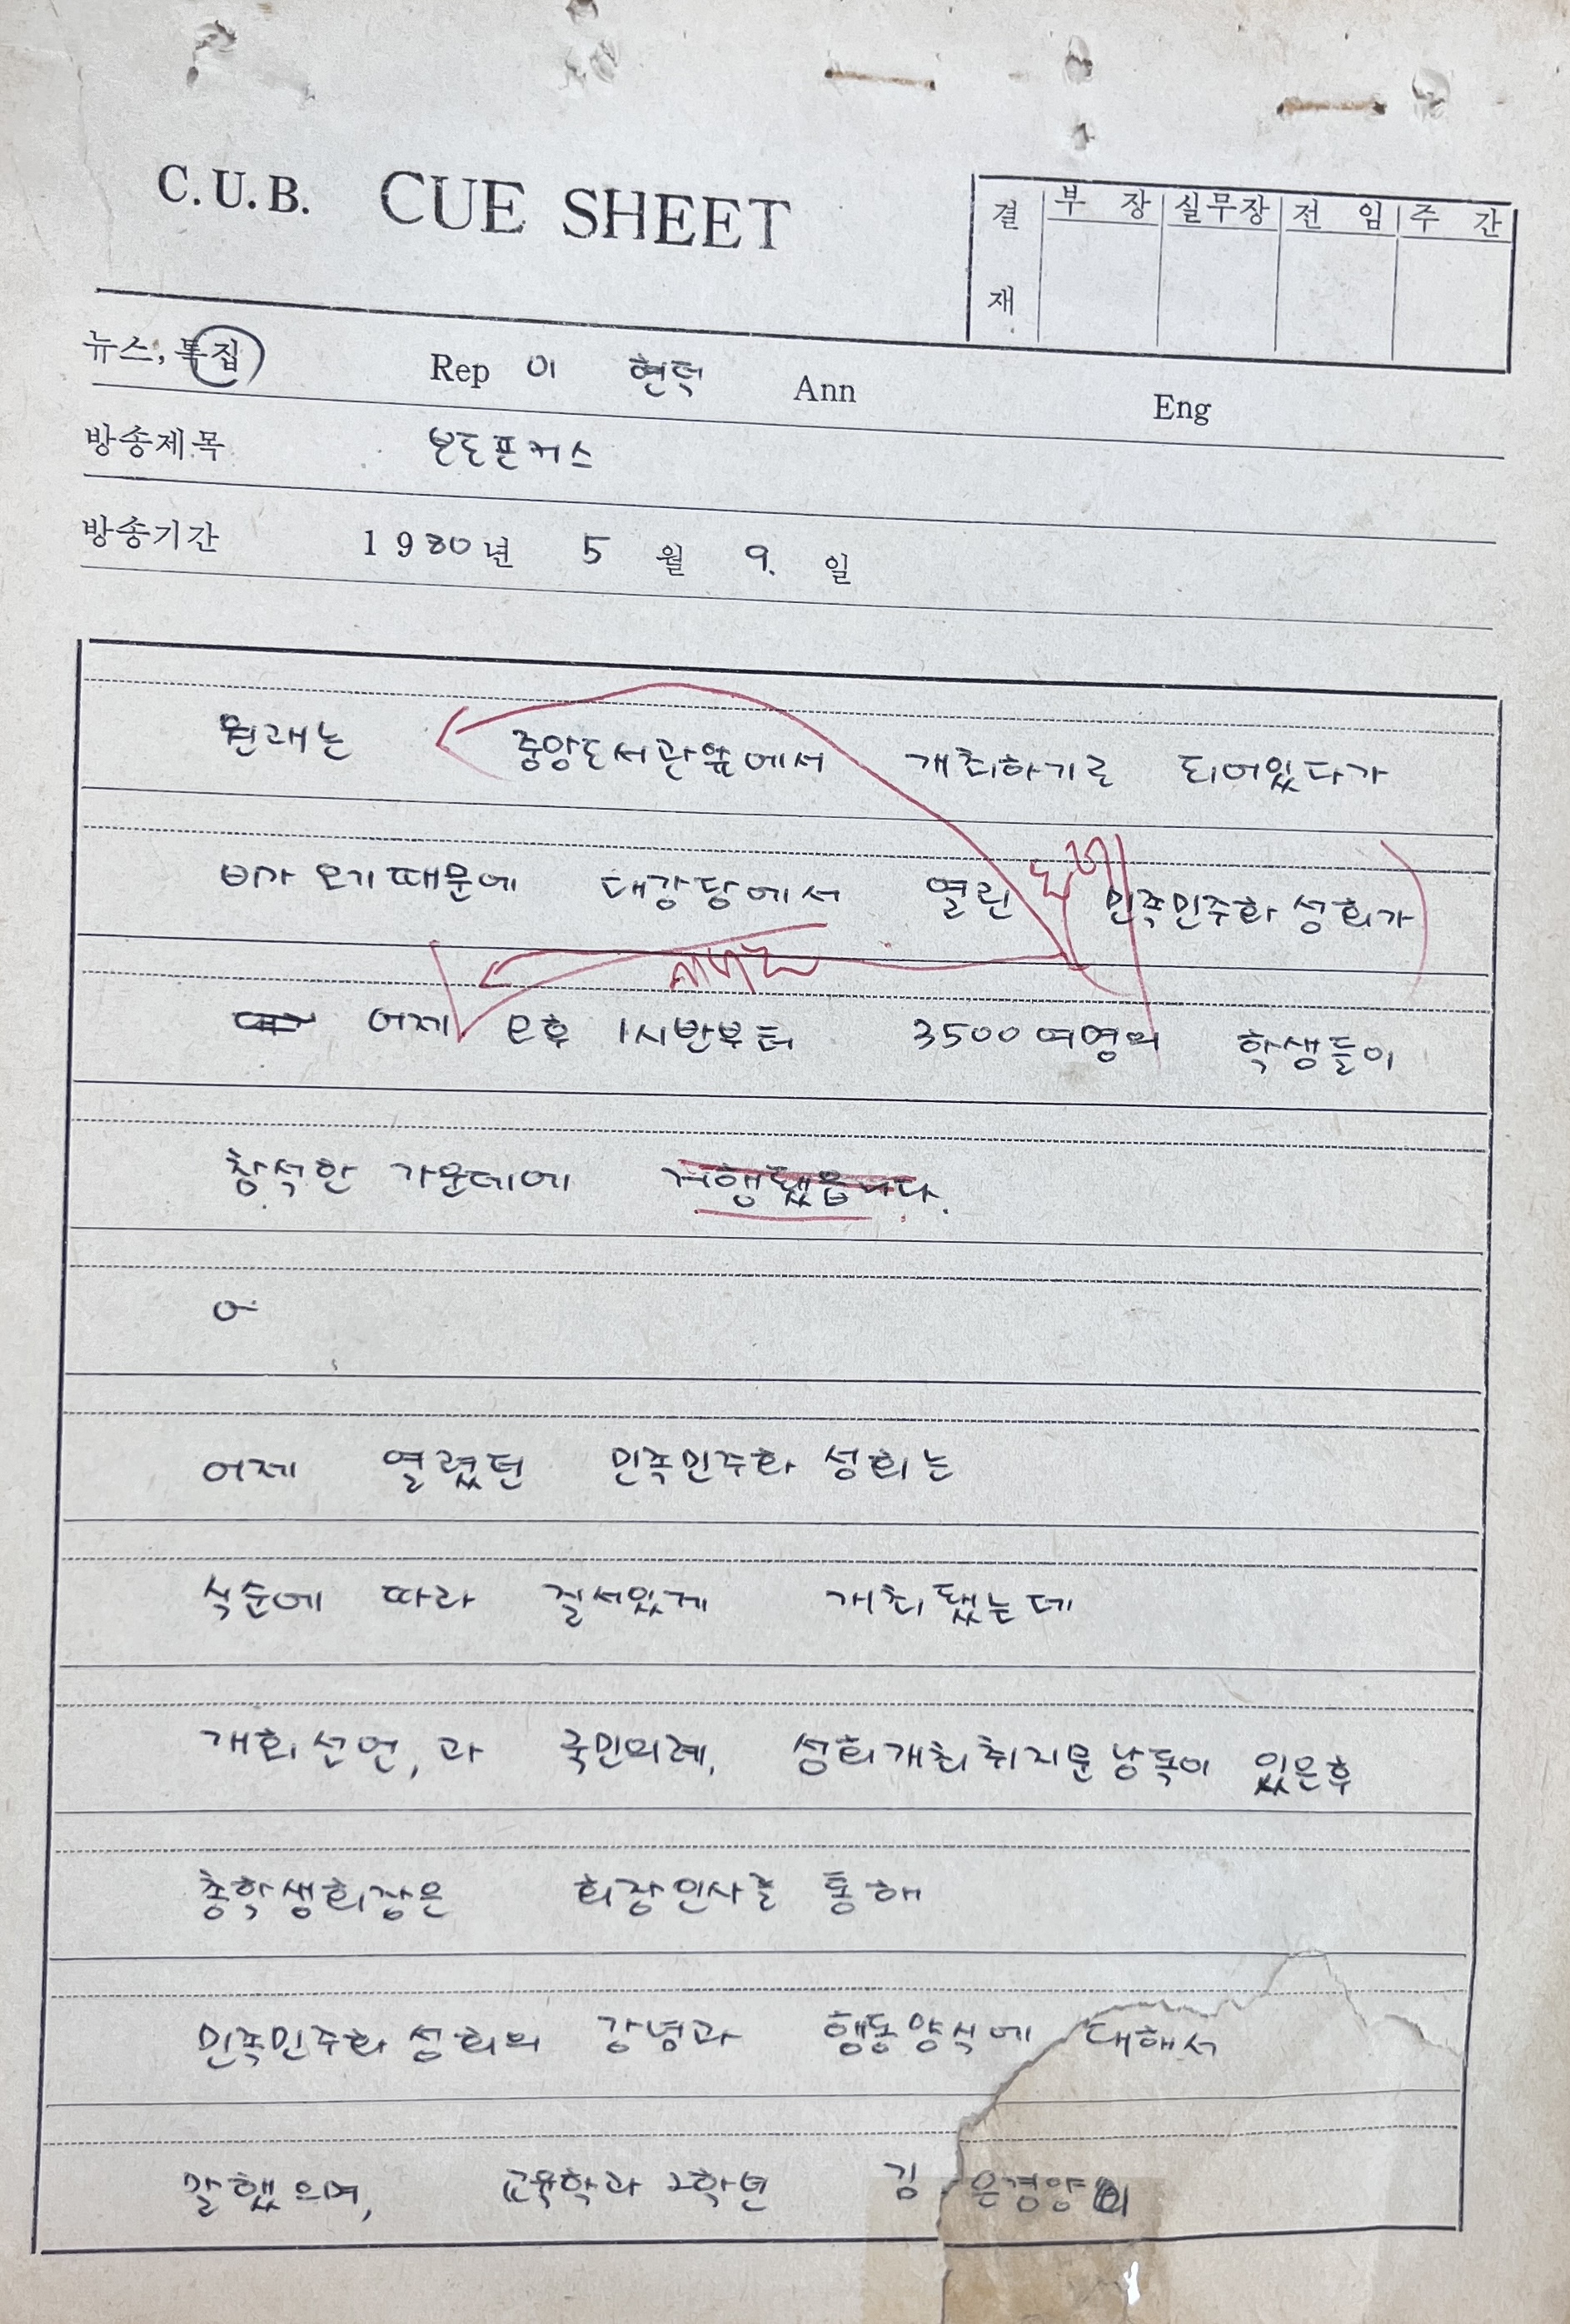 C.U.B. CUE SHEET
결재 부장 실무장 전임 주간
뉴스, 특집 Rep 이 현덕 Ann Eng
방송제목 보도포커스
방송기간 1980년 5월 9. 일
원래는 중앙도서관앞에서 개최하기로 되어있다가
비가 오기때문에 대강당에서 열린 민족민주화 성회가
어제 오후 1시반부터 3500여명의 학생들이
참석한 가운데에 거행됐읍니다.
어제 열렸던 민족민주화 성회는
식순에 따라 질서있게 개최됐는데
개회선언,과 국민의례, 성회개최취지문낭독이 있은후
총학생회장은 회장인사를 통해
민족민주화성회의 강령과 행동양식에 대해서
말했으며, 교육학과 2학년 김 은경양의